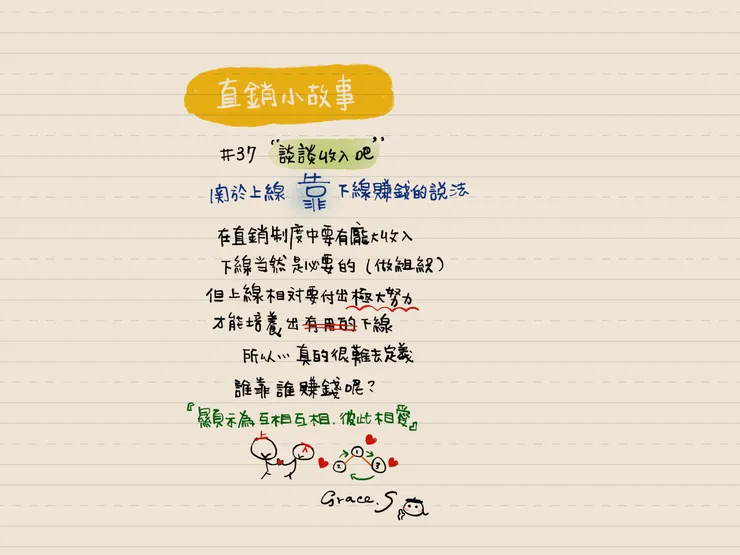 直銷小故事
#37 "談談收入吧"
關於上線 靠 下線賺錢的說法
在直銷制度中要有龐大收入
下線当然是必要的(做組織)
但上線相對要付出極大努力
才能培養出有用的下線
所以... 真的很難去定義
誰靠誰賺錢呢?
『顯示為互相互相.彼此相愛』
上 下
1
2 3
Grace.S